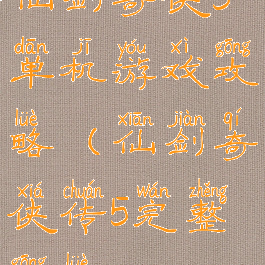 仙剑奇侠5
dān jī yóu xì gōng
单机游戏攻
lüè xiān jiàn qí
略（仙剑奇
xiá chuán wán zhěng
侠传5完整
gōng lüè